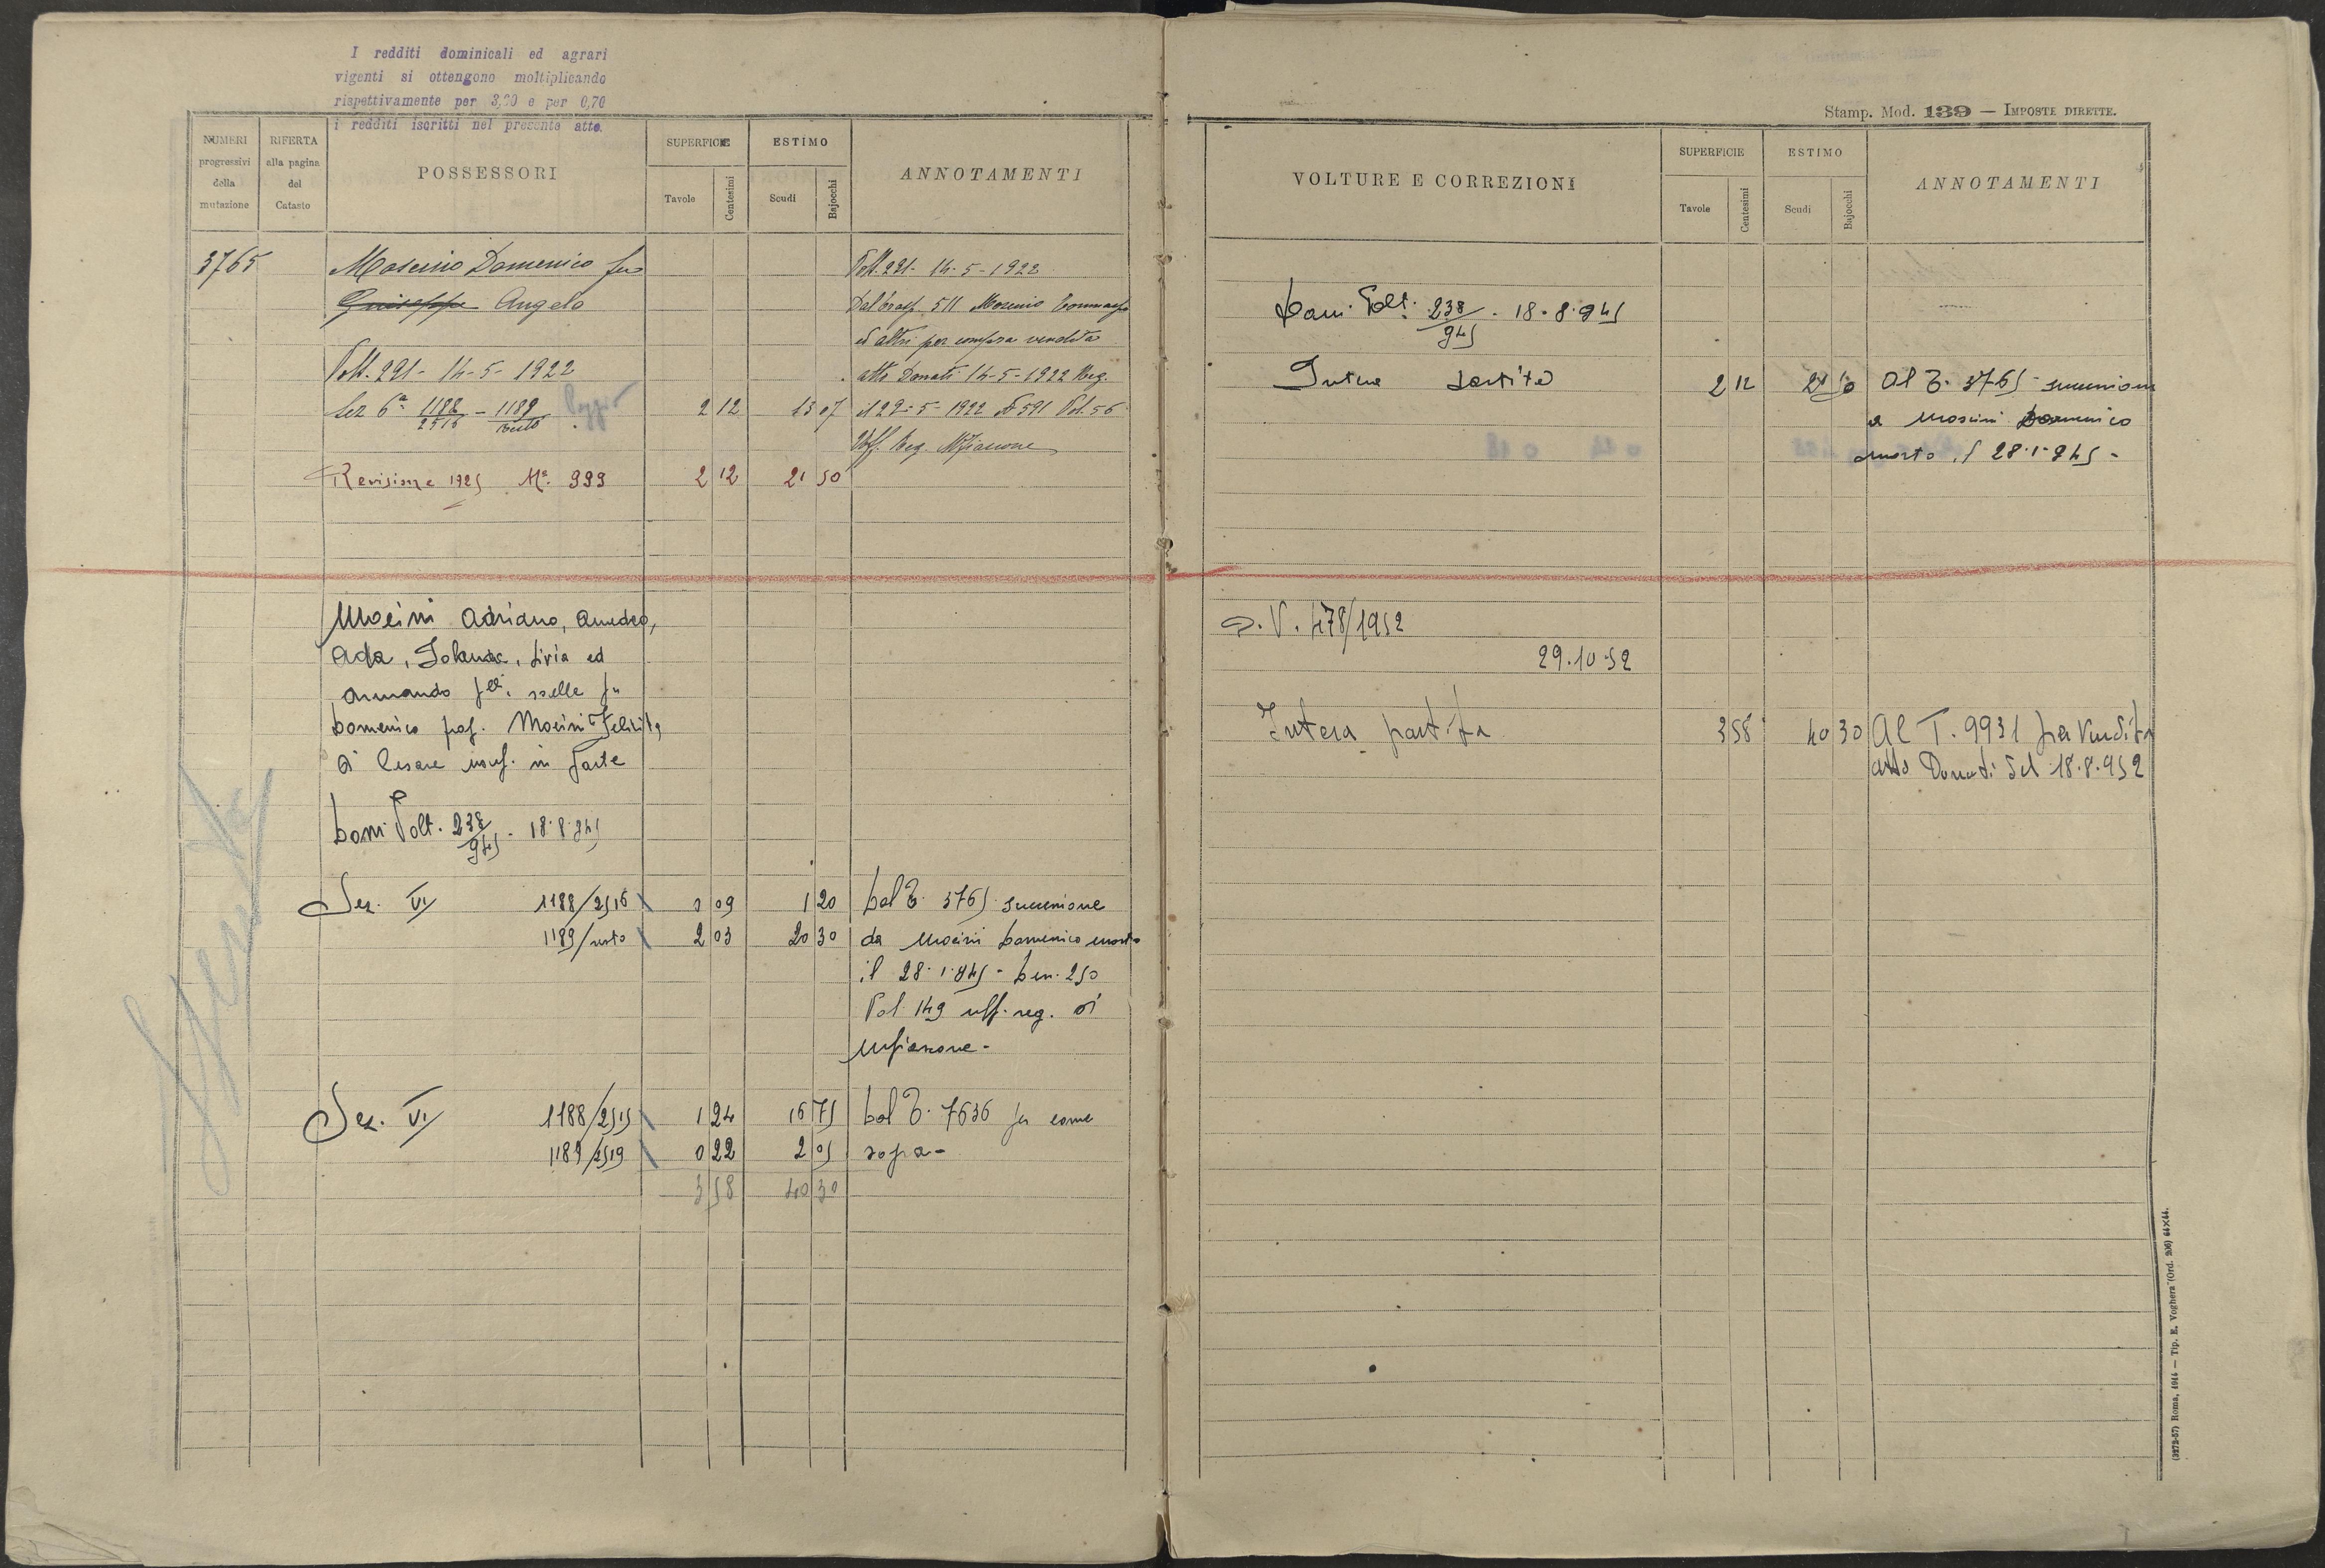 I redditi dominicali ed agrari
vigenti si ottengono moltiplicando
rispettivamente per 3,20 e per 0,70
i redditi iscritti nel presente atto.
NUMERI progressivi della mutazione
RIFERTA alla pagina del Catasto
POSSESSORI
SUPERFICIE
Tavole Centesimi
ESTIMO
Scudi Bajocchi
ANNOTAMENTI
3765 Domenico fu
Giuseppe Angelo
Volt. 291 - 14-5-1922
Sez 6ª 1188/2516 - 1189/resto 2 12 13 07
Revisione 1925 Nº 999 2 12 21 50
Volt. 291 - 14-5-1922
Dal 511
ed altri per compra vendita
atto Donati 14-5-1922 Reg.
il 29-5-1922 Nº 591 Vol. 56
Uff. Reg. Mfiascone
Mocini Adriano, Amedeo,
Ada, Iolanda, Livia ed
Armando flli. sorelle fu
Domenico prop. Mocini Felicita
di Cesare usuf. in parte
Dom. Volt. 238/945 - 18.8.945
Sez. VI 1188/2516 0 09 1 20 Dal T. 3765 successione
1189/resto 2 03 20 30 da Mocini Domenico morto
il 28.1.945 - Den. 250
Vol. 149 uff. reg. di
Mfiascone -
Sez. VI 1188/2515 1 24 16 75 Dal T. 7636 per come
1189/2519 0 22 2 05 sopra -
3 58 40 30
Stamp. Mod. 139 — IMPOSTE DIRETTE.
VOLTURE E CORREZIONI
SUPERFICIE
Tavole Centesimi
ESTIMO
Scudi Bajocchi
ANNOTAMENTI
Dom. Volt. 238/945 - 18.8.945
Intera partita 2 12 21 50 Al T. 3765 successione
a Domenico
morto il 28.1.945 -
D.V. 478/1952
29.10.52
Intera partita 3 58 40 30 Al T. 9931 per vendita
atto Donati del 18.8.952
(3272-57) Roma, 1914 — Tip. E. Voghera (Ord. 206) 44×44.